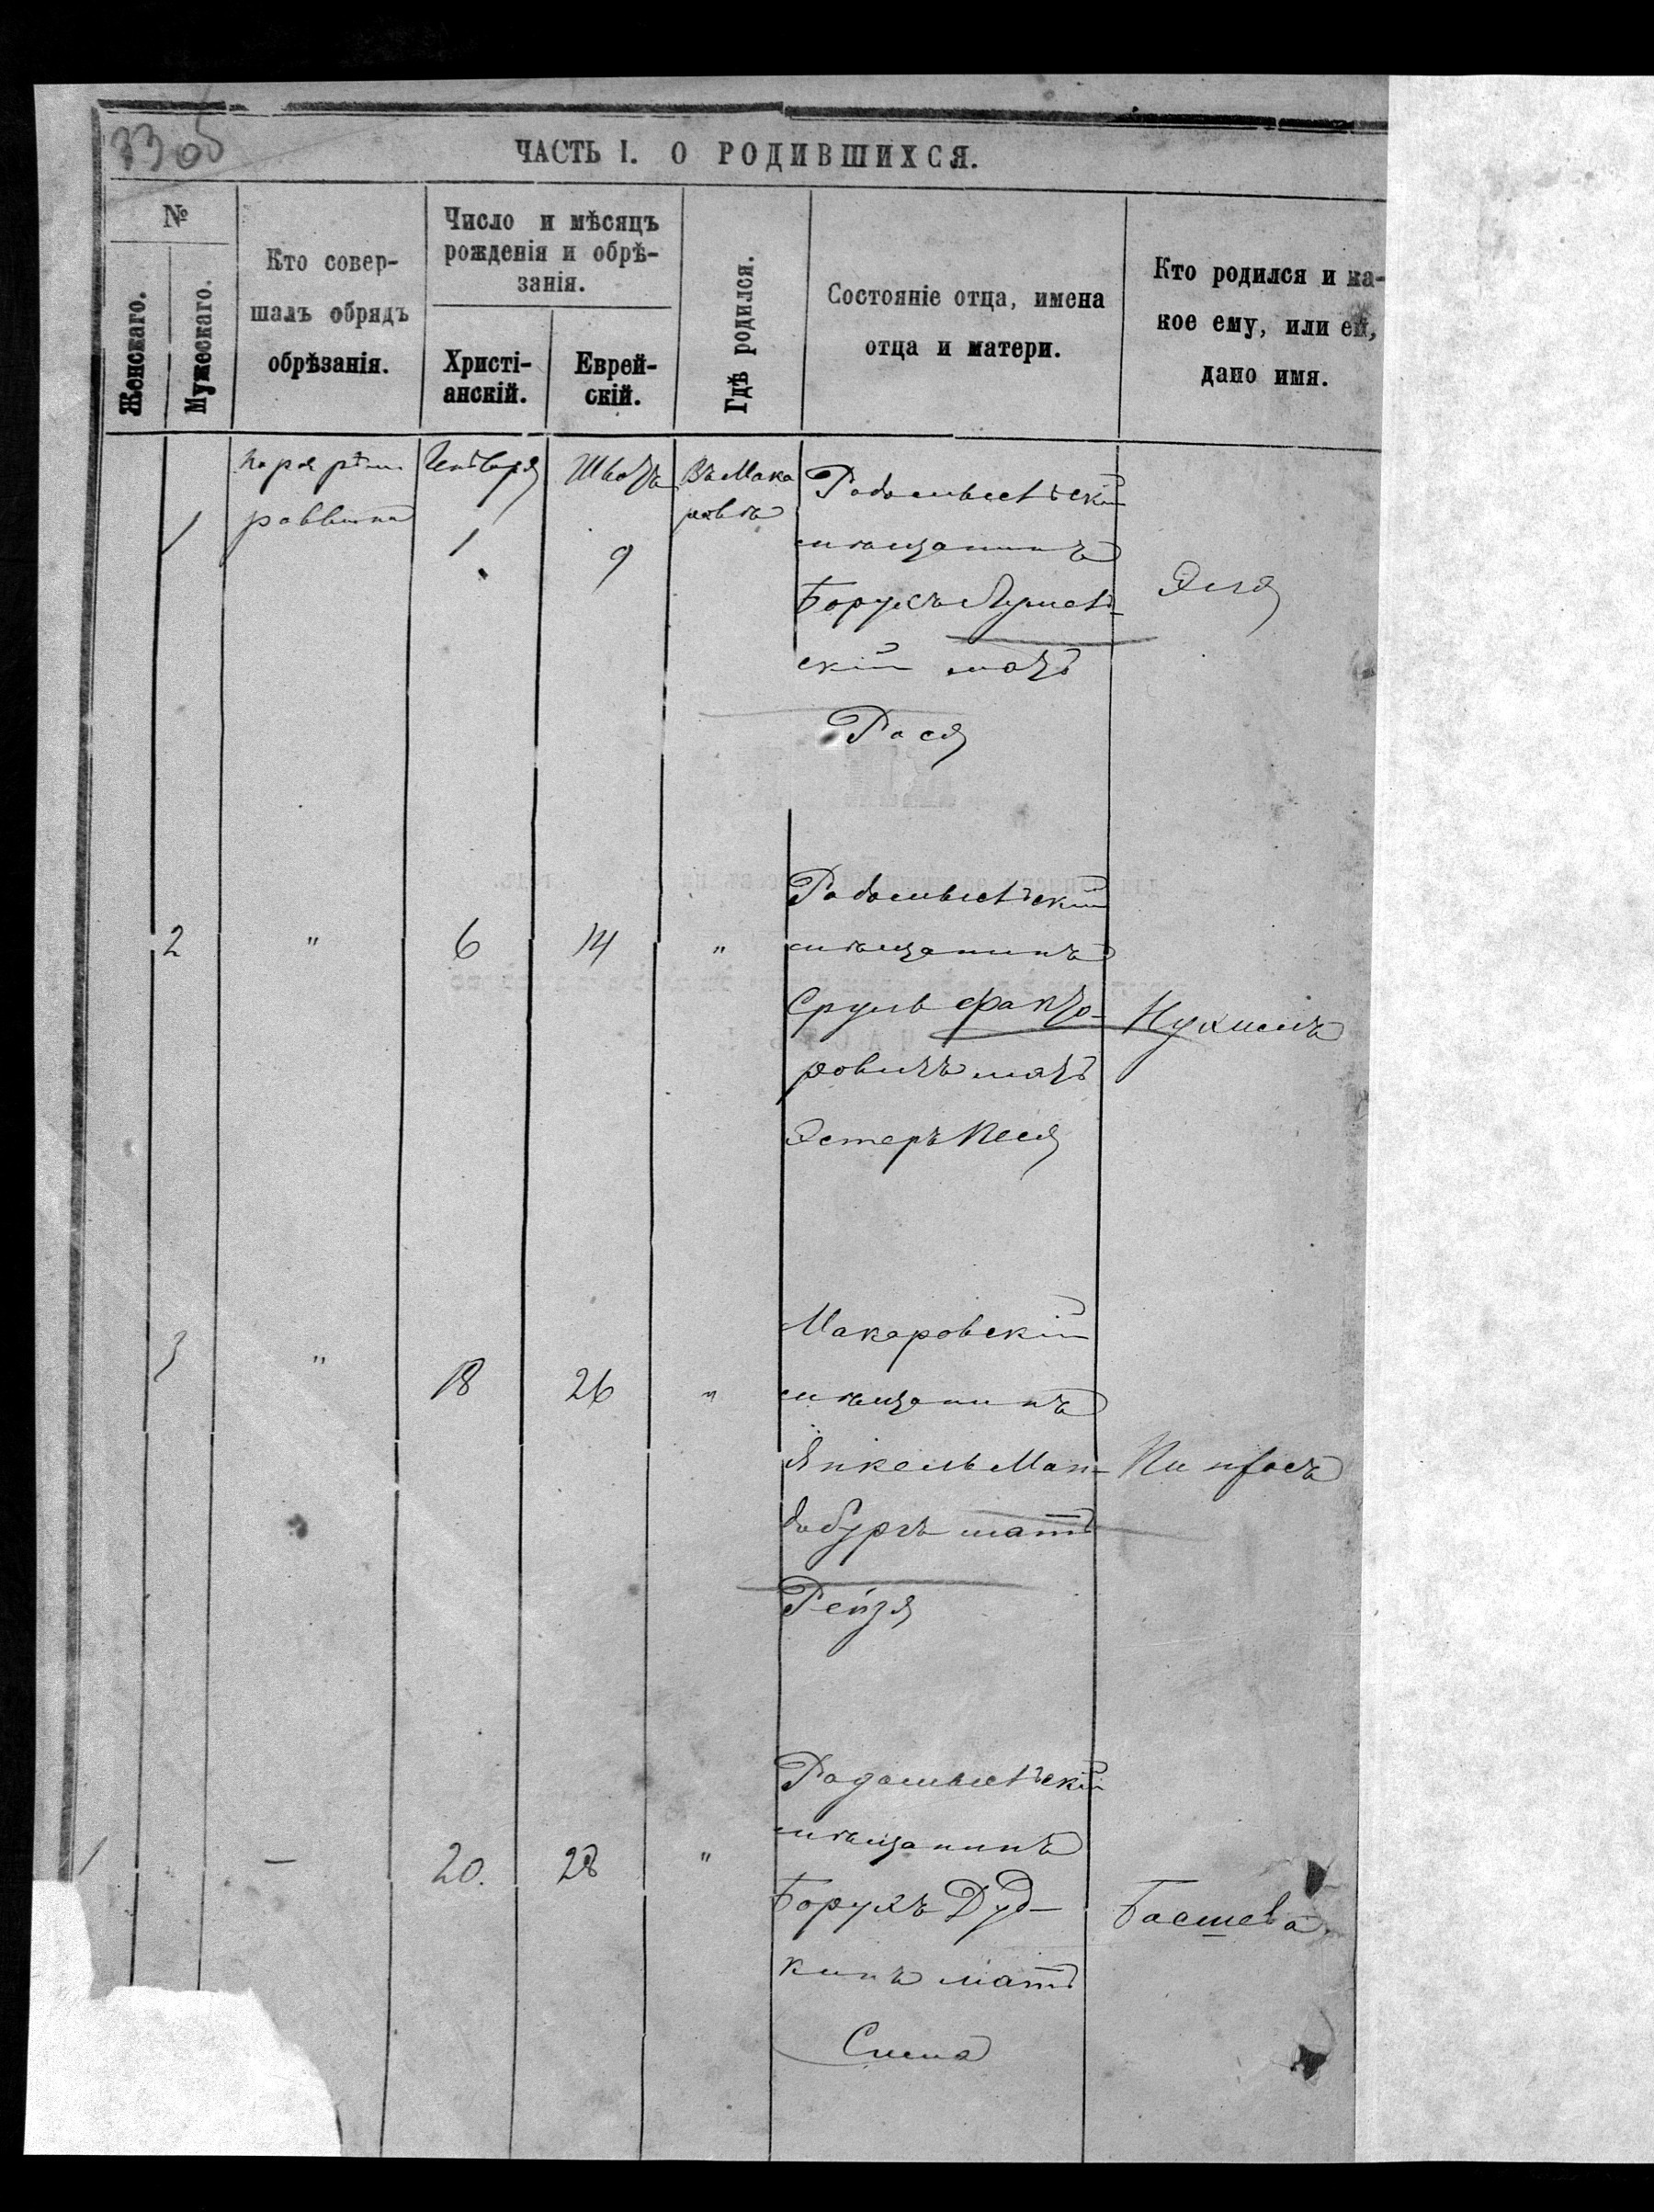 3305
ЧАСТЬ I. О РОДИВШИХСЯ.
№
Женскаго.
Мужескаго.
Кто совер-
шалъ обрядъ
обрѣзанія.
Число и мѣсяцъ
рожденія и обрѣ-
занія.
Христі-
анскій.
Еврей-
скій.
Гдѣ родился.
Состояніе отца, имена
отца и матери.
Кто родился и ка-
кое ему, или ей,
дано имя.
1
раввина
Генваря
1
Шватъ
9
Въ Мака
ровѣ
Радомысльскій
мѣщанинъ
Борухъ
скій мать
Рася
Эля
2
"
6
14
"
Радомысльскій
мѣщанинъ
Сруль Факто-
ровичъ мать
Эстеръ Песя
Нухимъ
3
"
18
26
"
Макаровскій
мѣщанинъ
Янкель Ман-
дабургъ мать
Рейзя
Пинхосъ
1
—
20.
28
"
Радомысльскій
мѣщанинъ
Борухъ Дуд-
кинъ мать
Сима
Басшева